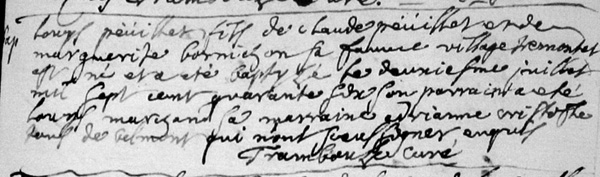 bap
louys péuillet fils de claude péuillet et de
marguerite bornichon sa famme village tremontet
est né et a eté baptysé le deuxiesme juillet
mil sept cent quarante six son parrain a eté
louys marchand sa marraine adrianne cristophe
tous de belmont qui n'ont sceu signer enquis
Trambouze curé